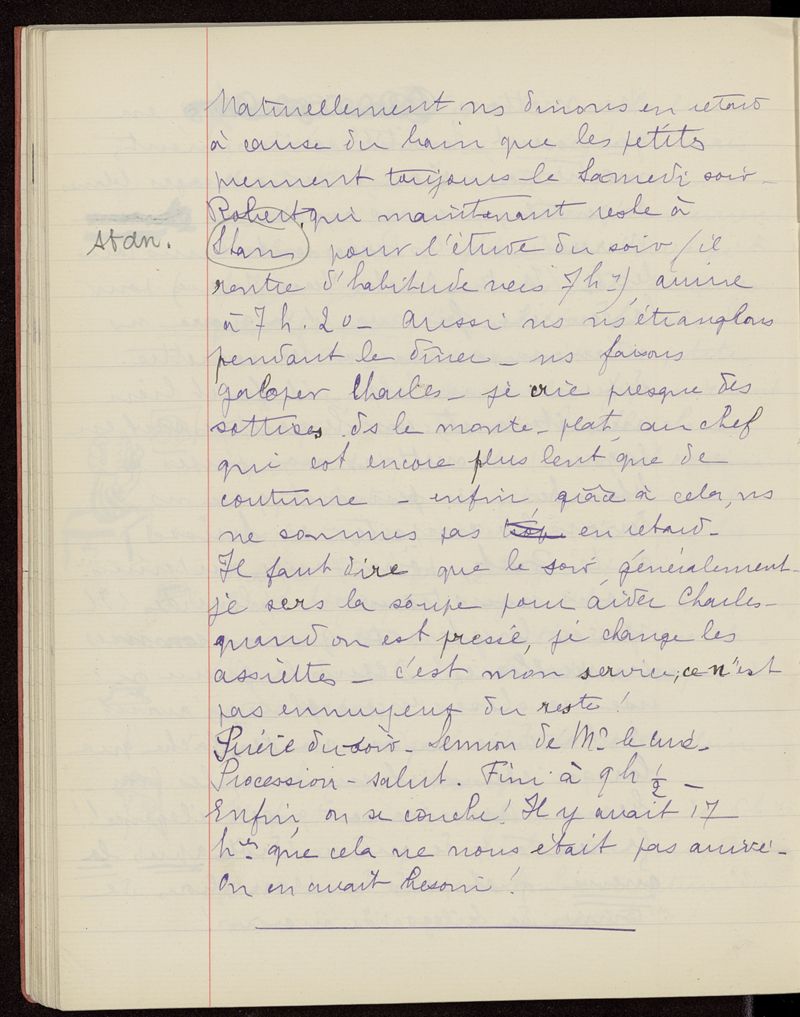 Naturellement ns dînons en retard
à cause du bain que les petites
prennent toujours le Samedi soir -
Robert, qui maintenant reste à
Stan pour l'étude du soir (il
rentre d'habitude vers 7h ¼) arrive
à 7h.20 - Aussi ns ns étranglons
pendant le dîner - ns faisons
galoper Charles - je crie presque des
sottises ds le monte-plat, au chef
qui est encore plus lent que de
coutume - enfin, grâce à cela, ns
ne sommes pas trop en retard -
Il faut dire que le soir, généralement
je sers la soupe pour aider Charles -
quand on est pressé, je change les
assiettes - c'est mon service; ce n'est
pas ennuyeux du reste!
Prière du soir - Sermon de Mr le curé -
Procession - salut. Fini à 9h ½ -
Enfin on se couche! Il y avait 17
hres que cela ne nous était pas arrivé -
On en avait besoin!